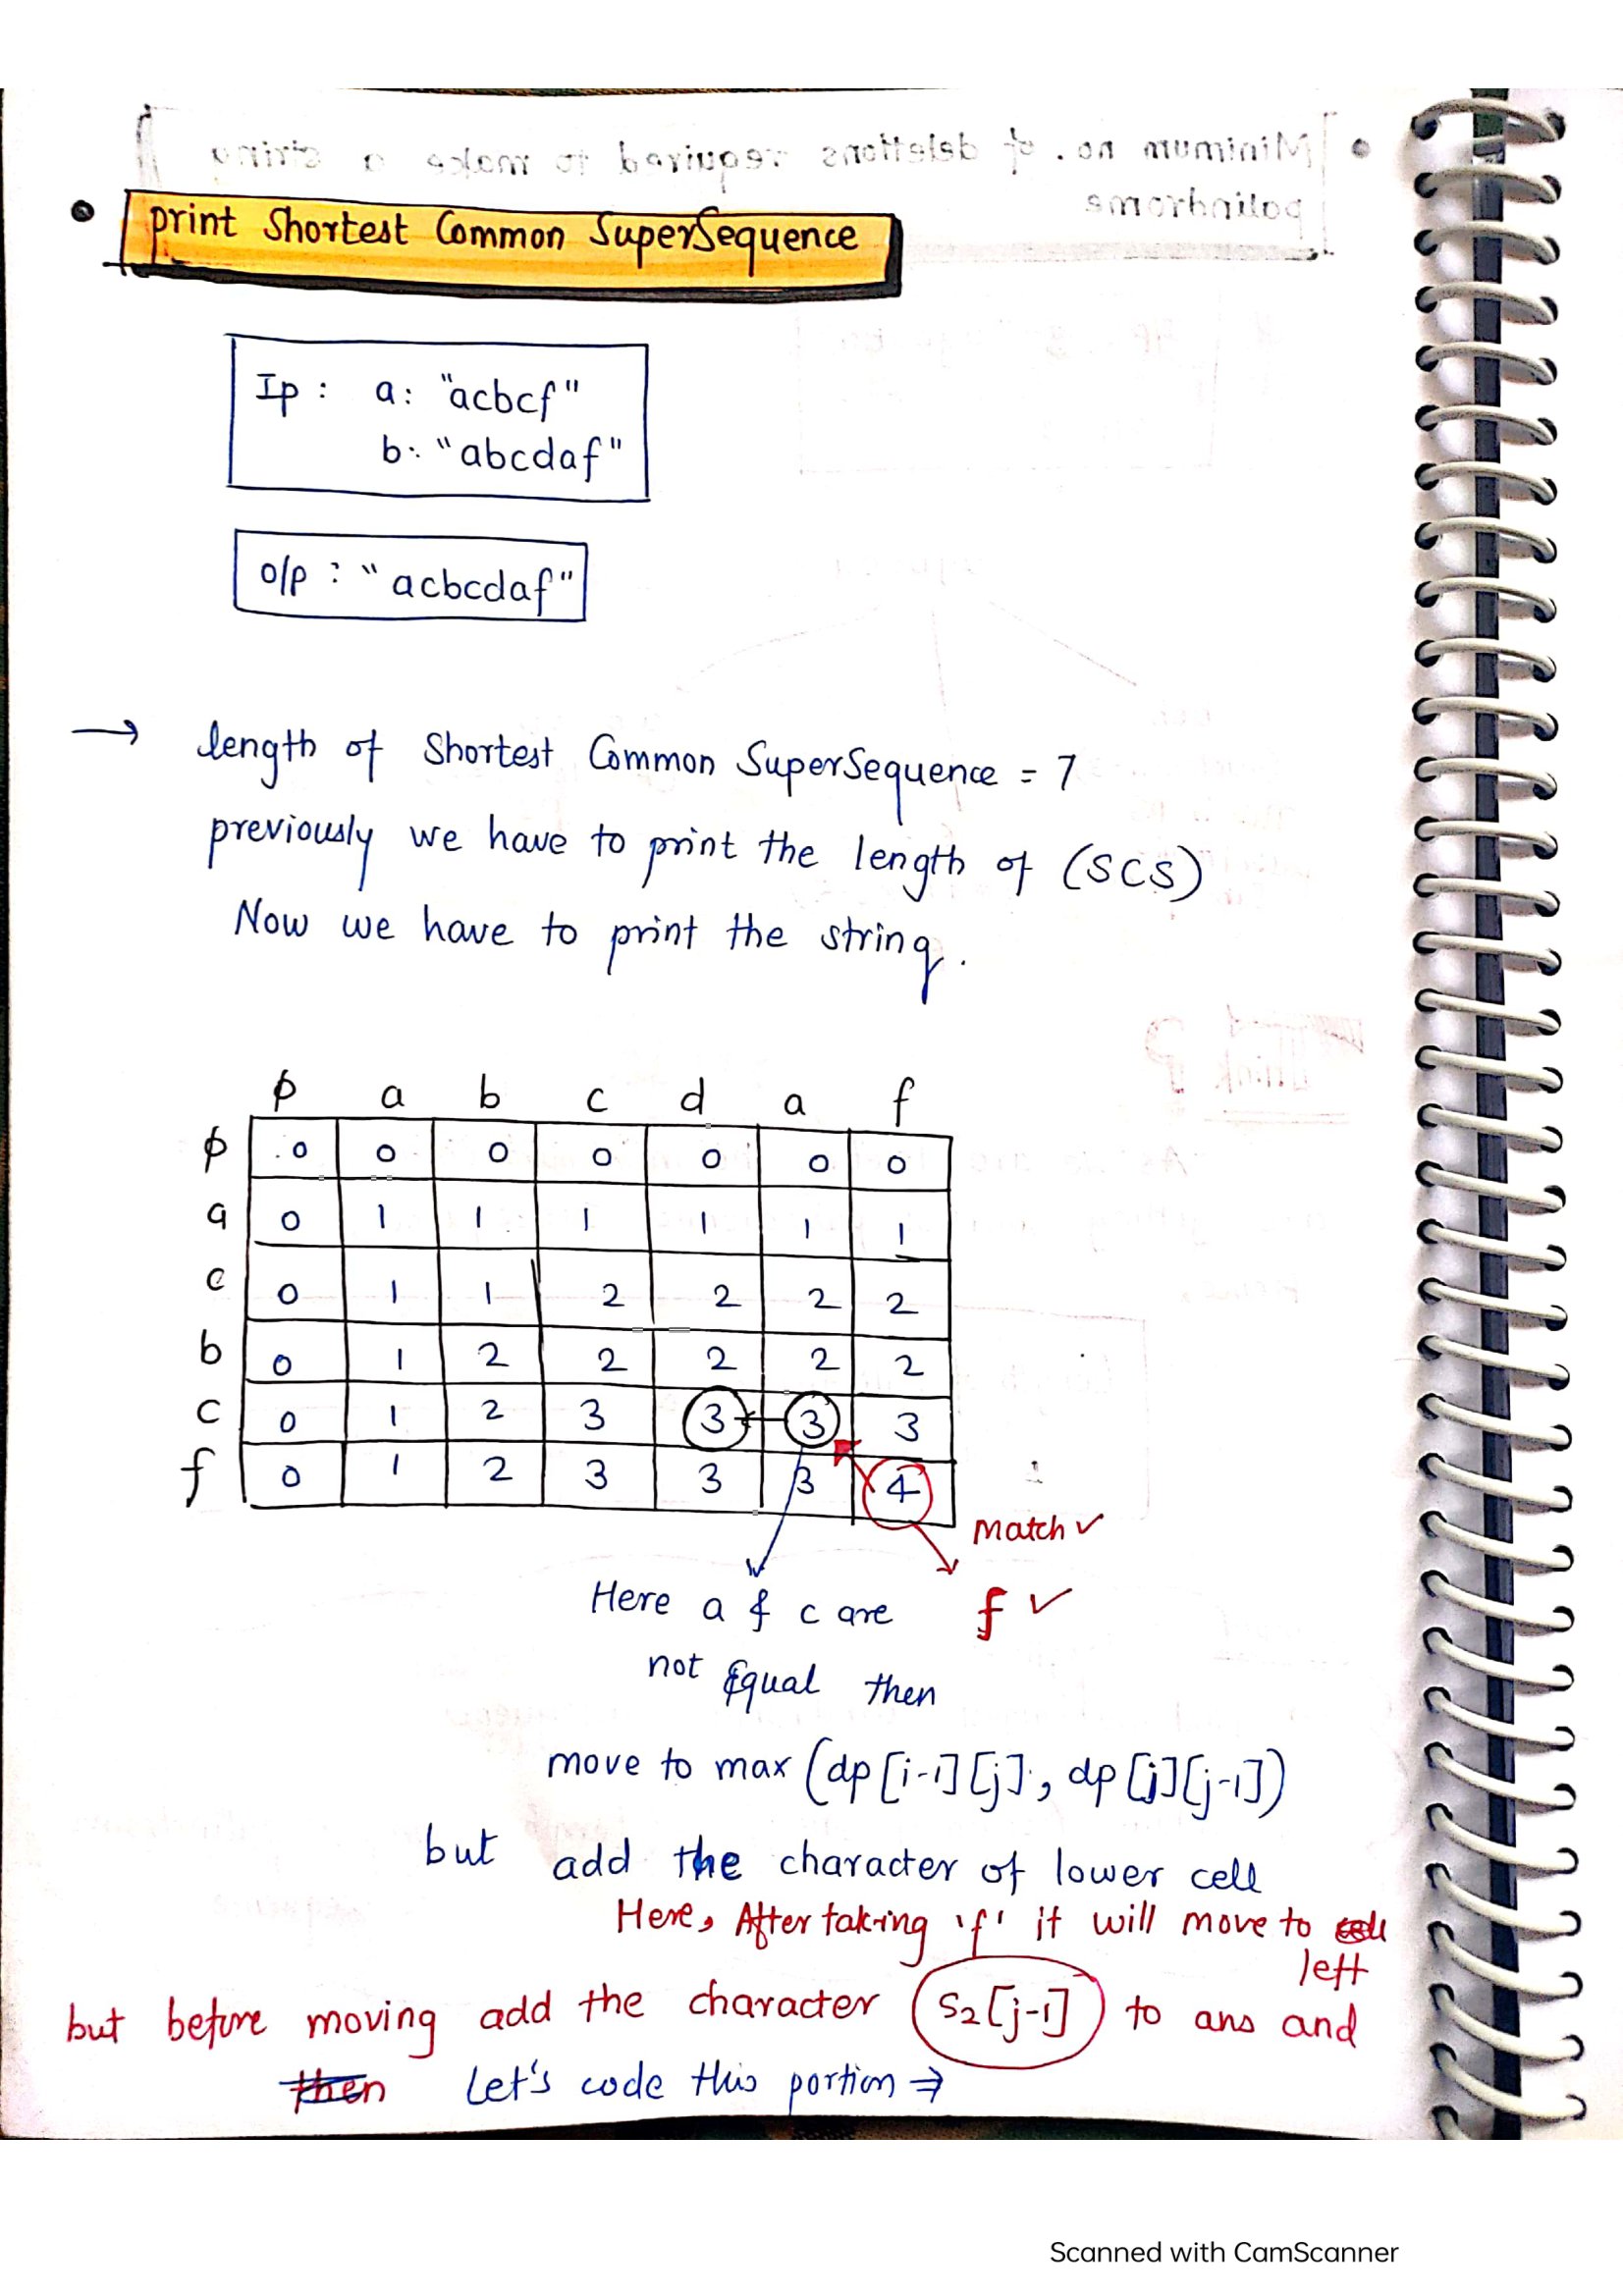 • print Shortest Common SuperSequence
Ip : a: "acbcf"
b: "abcdaf"
o/p : "acbcdaf"
→ length of Shortest Common SuperSequence = 7
previously we have to print the length of (SCS)
Now we have to print the string.
ϕ a b c d a f
ϕ 0 0 0 0 0 0 0
a 0 1 1 1 1 1 1
c 0 1 1 2 2 2 2
b 0 1 2 2 2 2 2
c 0 1 2 3 3 3 3
f 0 1 2 3 3 3 4
Match ✓
f ✓
Here a & c are
not Equal then
move to max (dp[i-1][j], dp[j][j-1])
but add the character of lower cell
Here, After taking 'f' it will move to
left
but before moving add the character s2[j-1] to ans and
then Let's code this portion ⇒
Scanned with CamScanner